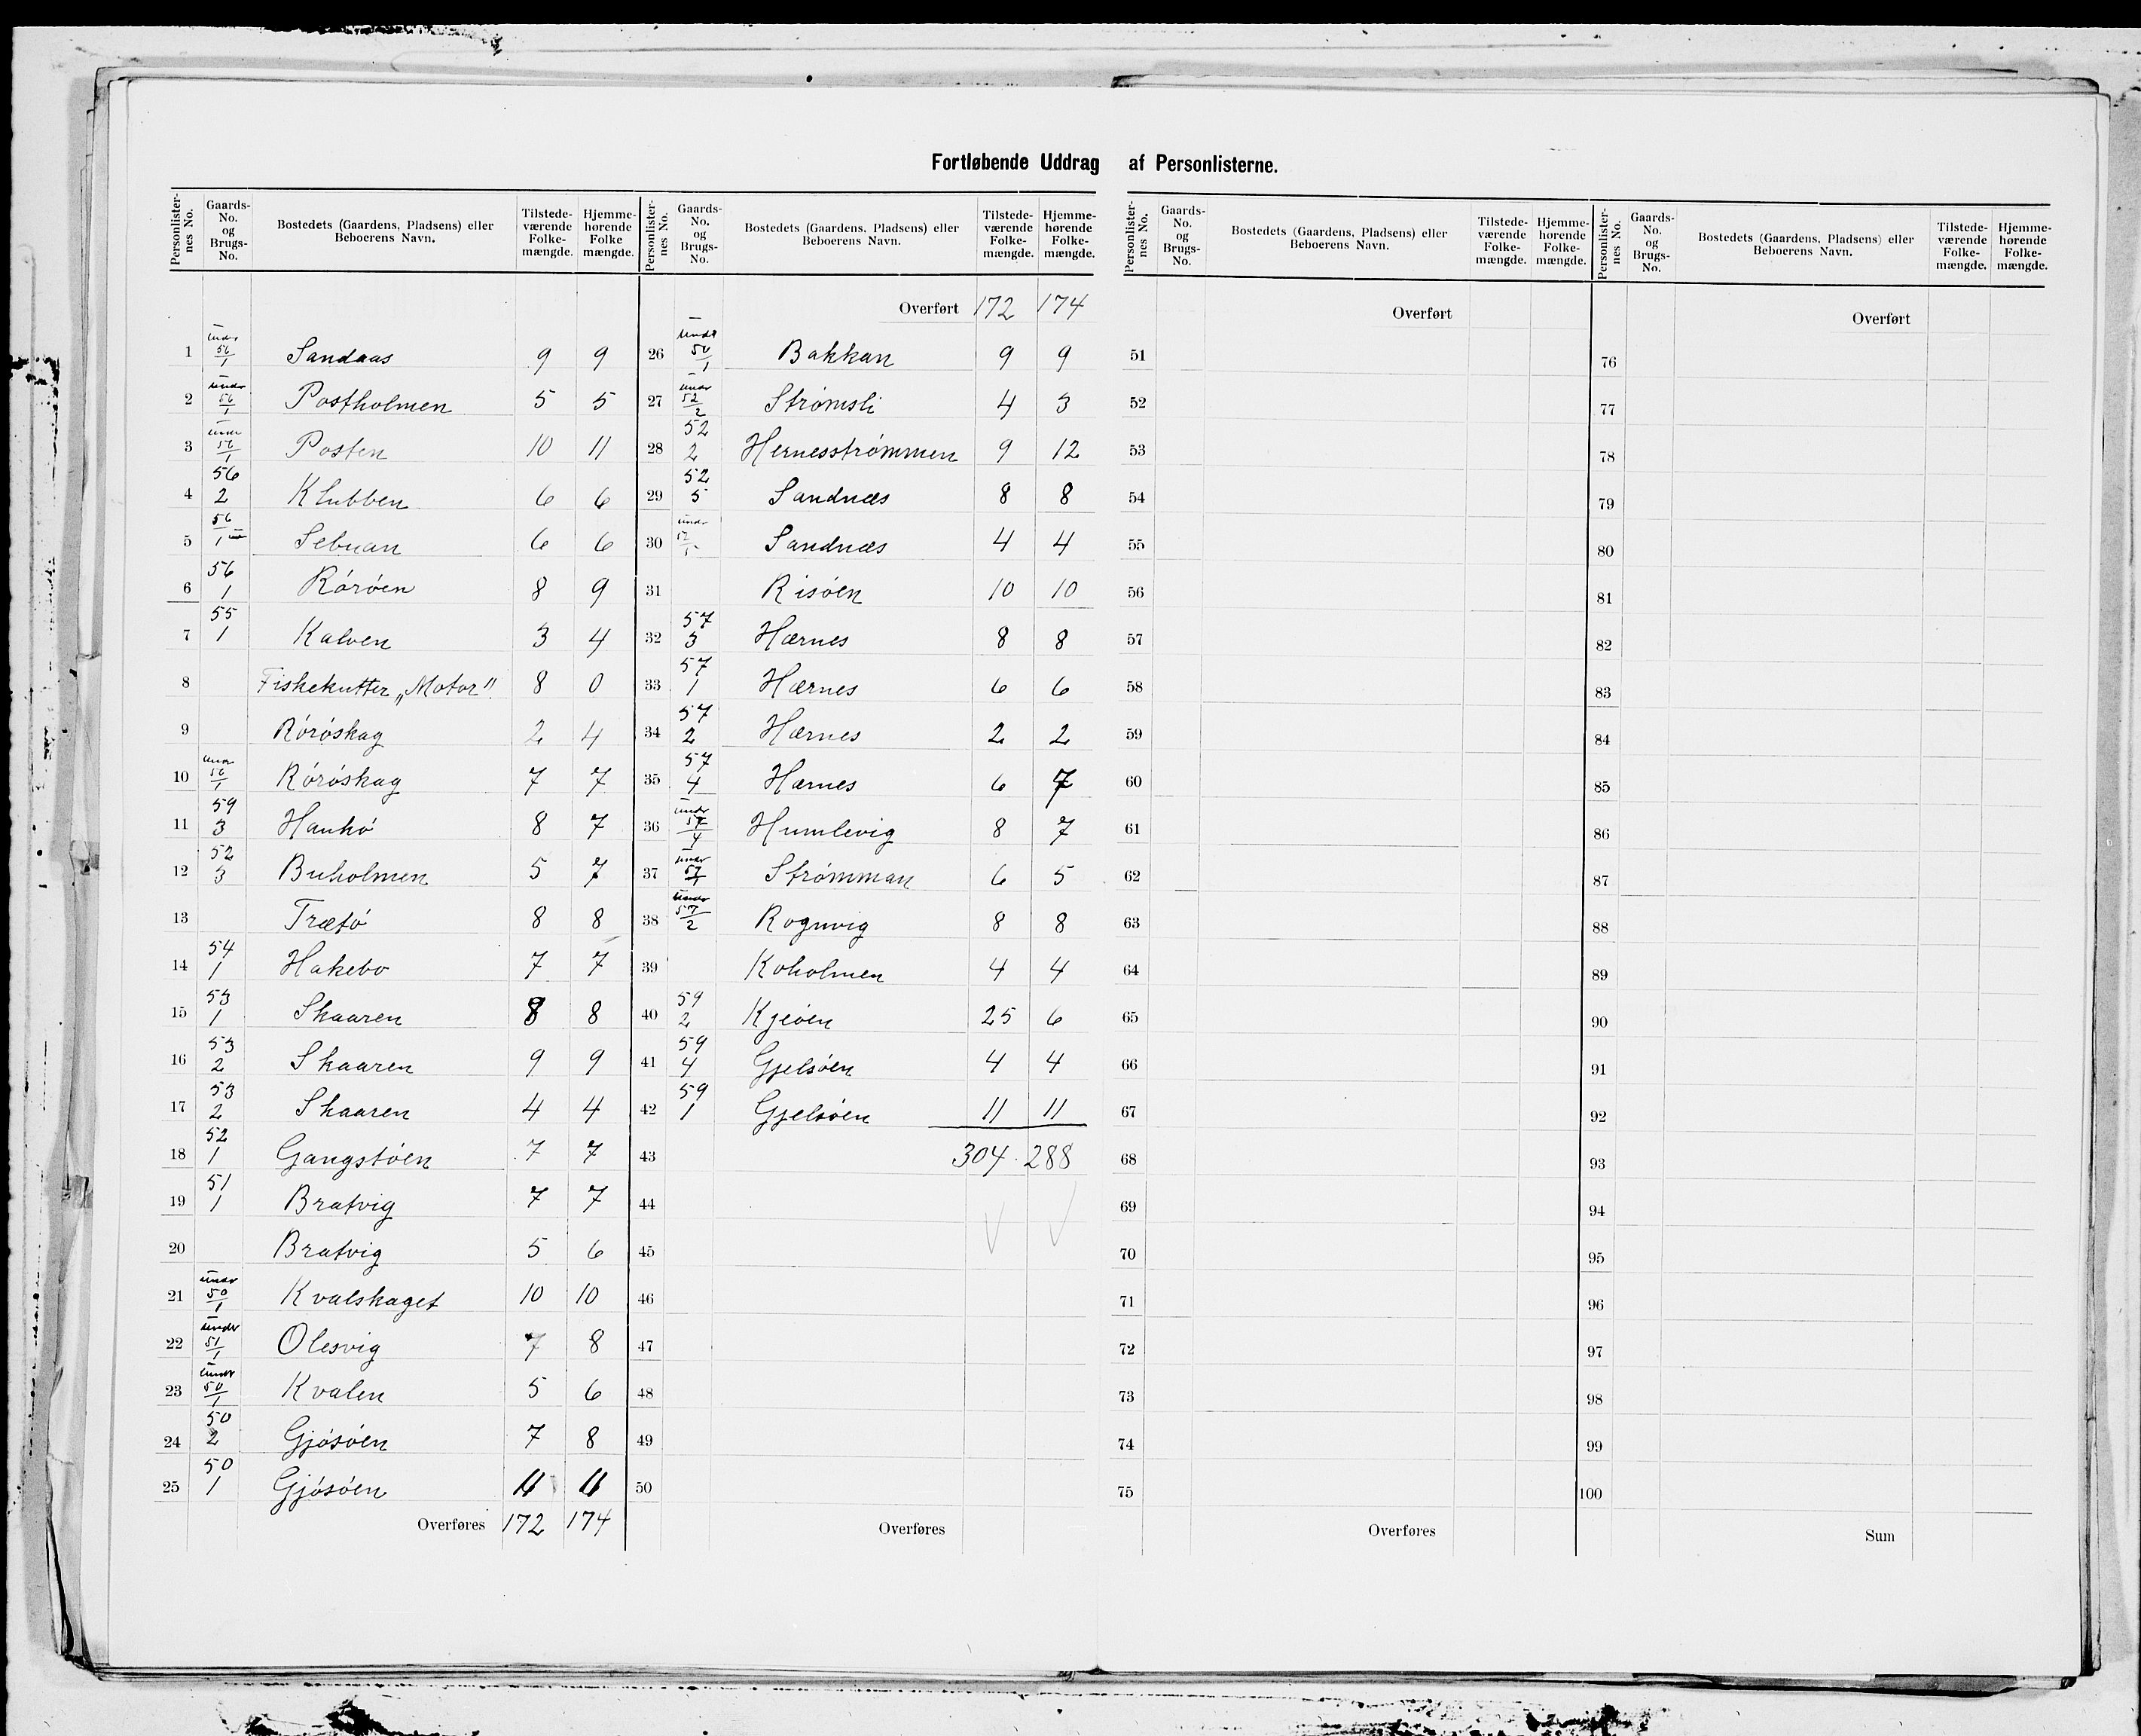 Fortløbende Uddrag af Personlisterne.
Personlister-nes No. | Gaards-No. og Brugs-No. | Bostedets (Gaardens, Pladsens) eller Beboerens Navn. | Tilstede-værende Folke-mængde. | Hjemme-hørende Folke mængde.
1 under 56/1 Sandaas 9 9
2 under 56/1 Postholmen 5 5
3 under 56/1 Posten 10 11
4 56/2 Klubben 6 6
5 56/1 Sebuan 6 6
6 56/1 Róróen 8 9
7 55/1 Kalven 3 4
8 Fiskekutter „Motor" 8 0
9 Róróskag 2 4
10 under 56/1 Róróskag 7 7
11 59/3 Hankó 8 7
12 52/3 Buholmen 5 7
13 Trætó 8 8
14 54/1 Hakebo 7 7
15 53/1 Skaaren 8 8
16 53/2 Skaaren 9 9
17 53/2 Skaaren 4 4
18 52/1 Gangstóen 7 7
19 51/1 Bratvig 7 7
20 Bratvig 5 6
21 under 50/1 Kvalskaget 10 10
22 under 51/1 Olesvig 7 8
23 under 50/1 Kvalen 5 6
24 50/2 Gjósóen 7 8
25 50/1 Gjósóen 11 11
Overføres 172 174
Personlister-nes No. | Gaards-No. og Brugs-No. | Bostedets (Gaardens, Pladsens) eller Beboerens Navn. | Tilstede-værende Folke-mængde. | Hjemme-hørende Folke-mængde.
Overført 172 174
26 under 50/1 Bakkan 9 9
27 under 52/2 Strómsli 4 3
28 52/2 Hernesstrómmen 9 12
29 52/5 Sandnæs 8 8
30 under Sandnæs 4 4
31 Risóen 10 10
32 57/3 Hærnes 8 8
33 57/1 Hærnes 6 6
34 57/2 Hærnes 2 2
35 57/4 Hærnes 6 7
36 under 57/4 Humlevig 8 7
37 under 57/1 Strómman 6 5
38 under 57/2 Rognvig 8 8
39 Koholmen 4 4
40 59/2 Kjeóen 25 6
41 59/4 Gjelsóen 4 4
42 59/1 Gjelsóen 11 11
43 304 288
44
45
46
47
48
49
50
Overføres
Personlister-nes No. | Gaards-No. og Brugs-No. | Bostedets (Gaardens, Pladsens) eller Beboerens Navn. | Tilstede-værende Folke-mængde. | Hjemme-hørende Folke-mængde.
Overført
51
52
53
54
55
56
57
58
59
60
61
62
63
64
65
66
67
68
69
70
71
72
73
74
75
Overføres
Personlister-nes No. | Gaards-No. og Brugs-No. | Bostedets (Gaardens, Pladsens) eller Beboerens Navn. | Tilstede-værende Folke-mængde. | Hjemme-hørende Folke-mængde.
Overført
76
77
78
79
80
81
82
83
84
85
86
87
88
89
90
91
92
93
94
95
96
97
98
99
100
Sum